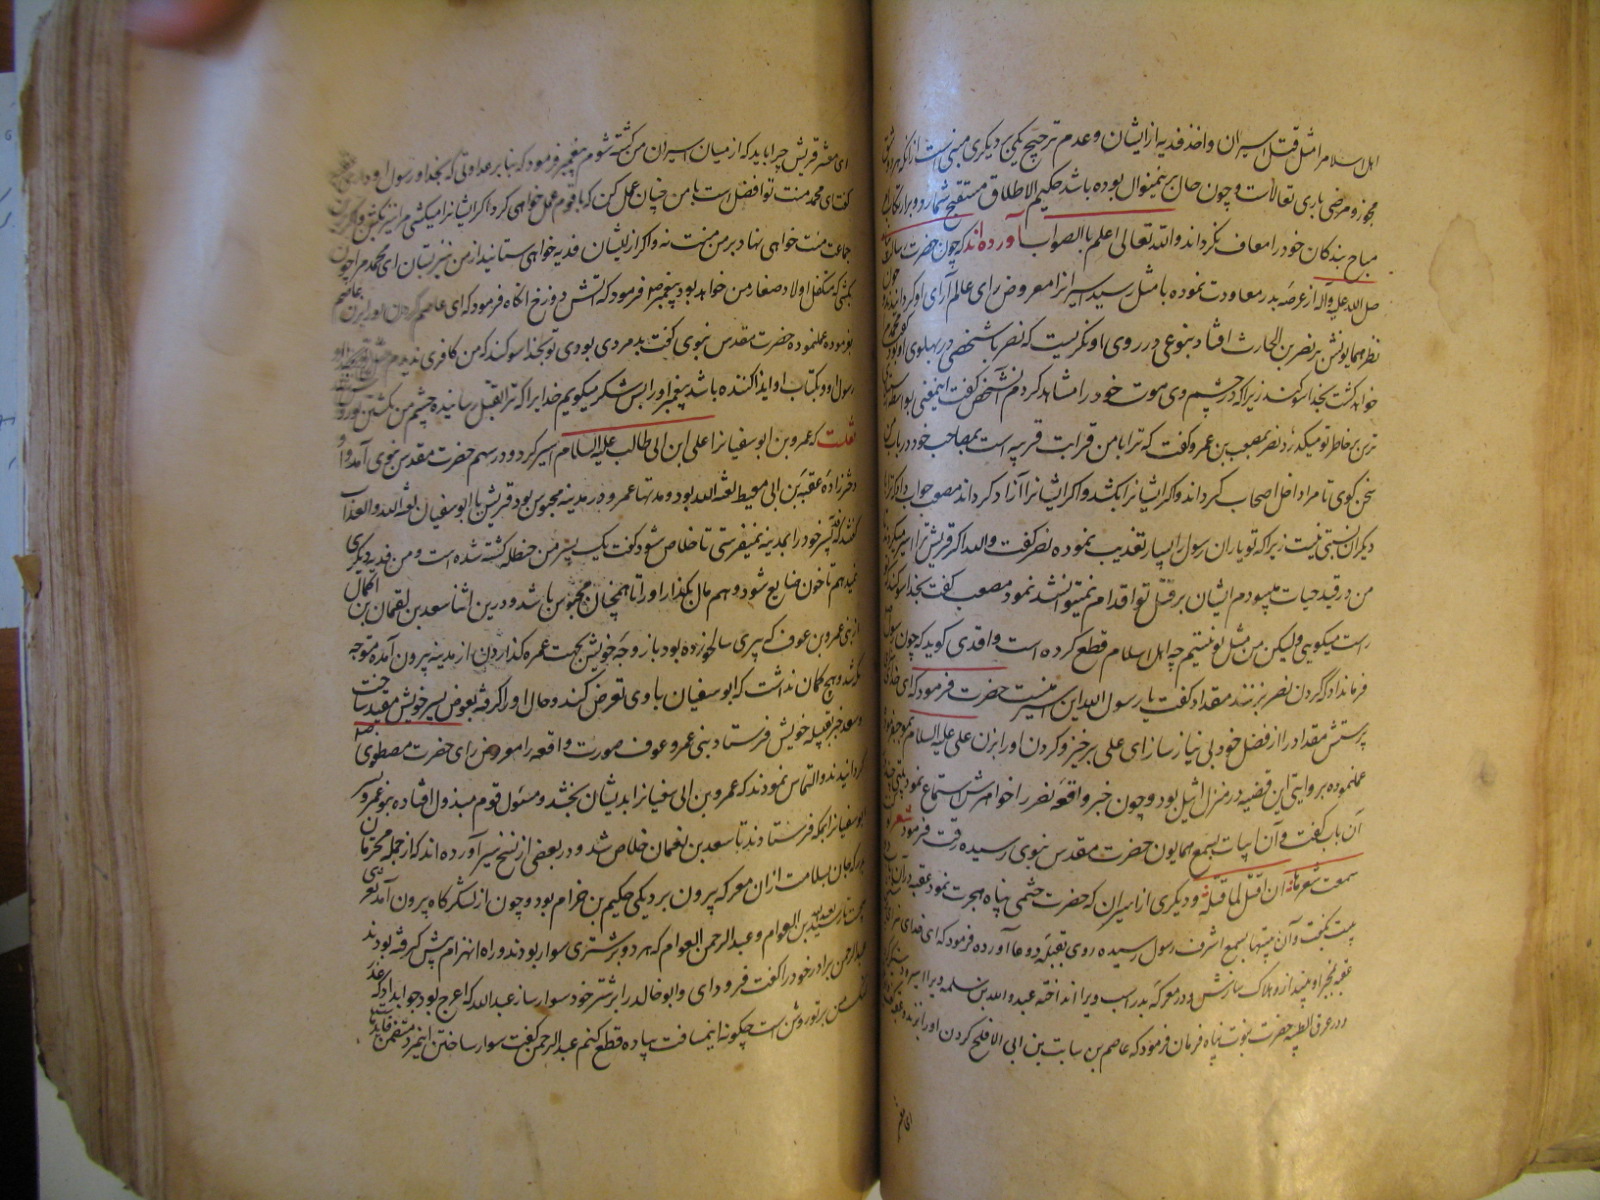 اهل اسلام را مثل قتل اسیران و اخذ فدیه از ایشان و عدم ترجیح یکی بر دیگری مبنی است از آنکه هر دو شق
مجوز و مرضی باری تعالاست و چون حال بر ینمنوال بوده باشد حکیم الاطلاق مستقبح شمارد و بر ارتکاب
مباح بندکان خود را معاف نکرداند والله تعالی اعلم بالصواب آورده‌اند که چون حضرت رسالت
صلی الله علیه و آله از عرصه بدر معاودت نموده باثیل رسید اسیرانرا معروض رای عالم آرای او کردانیدند چون
نظر همایونش بر نضر بن الحارث افتاد بنوعی در روی او نکریست که نضر با شخصی در پهلوی او بود کفت محمد مرا
خواهد کشت بخدا سوکند زیرا که در چشم وی موت خود را مشاهد کردم آنشخص کفت اینمعنی بواسطه
ترس بر خاطر تو میکذرد نضر بمصعب بن عمیر کفت که ترا با من قرابت قریبه است بمصاحب خود در باب من
سخن کوی تا مرا داخل اصحاب کرداند و اکر ایشانرا بکشد و اکر ایشانرا آزاد کرداند مصعب جواب داد که ترا با
دیکران نسبتی نیست زیرا که تو یاران رسول را بسیار تعذیب نموده نضر کفت والله اکر قریش ترا اسیر میکردند
من در قید حیات میبودم ایشان بر قتل تو اقدام نمیتوانستند نمود مصعب کفت بخدا سوکند که
راست میکویی ولیکن من مثل تو نیستم چه اهل اسلام قطع کرده است واقدی کوید که چون رسول
فرمان داد که کردن نضر بزنند مقداد کفت یا رسول الله این اسیر منست حضرت فرمود که ای خدای
پرستش مقداد را از فضل خود بی نیاز ساز ای علی برخیز و کردن او را بزن علی علیه السلام بموجب فرموده
عمل نموده بروایتی این قضیه در منزل اثیل بود و چون خبر واقعه نضر را خواهرش استماع نمود بیتی چند
در آن باب کفت و آن ابیات بسمع همایون حضرت مقدس نبوی رسیده رقت فرمود شعر لو
سمعت شعرها قبل ان اقتله لما قتلته و دیکری از اسیران که حضرت ختمی پناه هجرت نمود عقبه در آن باب
بیت بکفت و آن بیتها بسمع اشرف رسول رسیده روی بقبله دعا آورده فرمود که ای خدای
عقبه را بخر او بینداز و هلاک سازش و در معرکه بدر اسب ویرا انداخته عبدالله بن سلمه ویرا اسیر کرد
و در عرق الظبیه حضرت نبوت پناه فرمان فرمود که عاصم بن ثابت بن ابی الافلح کردن او را بزند و عقبه کفت
ای معشر
ای معشر قریش چرا باید که از میان اسیران من کشته شوم پیغمبر فرمود که بنابر عداوتی که بخدا و رسول او داری
کفت ای محمد منت تو افضل است با من چنان عمل کن که با قوم عمل خواهی کرد اکر ایشانرا میکشی مرا نیز بکش و اکر بر این
جماعت منت خواهی نهاد بر من منت نه و اکر از ایشان فدیه خواهی ستانید از من نیز بستان ای محمد مرا چون
بکشی که متکفل اولاد صغار من خواهد بود پیغمبر صلعم فرمود که آتش دوزخ انکاه فرمود که ای عاصم کردن او را بزن عاصم
بفرموده عمل نموده حضرت مقدس نبوی کفت بد مردی بودی تو بخدا سوکند که من کافری ندیدم
رسول او و بکتاب او ایذا کننده باشد پیغمبر او را پس شکر میکویم خدایرا که ترا بقتل رسانیده چشم من بکشتن تو روشن
نقلست که عمرو بن ابو سفیانرا علی ابن ابی طالب علیه السلام اسیر کرد و در سهم حضرت مقدس نبوی آمد و او
دختر زاده عقبه بن ابی معیط لعنه الله بود و مدتها عمرو در مدینه محبوس بود قریش با ابو سفیان لعنه الله والعذاب
کفتند که پسر خود را بمدینه نمیفرستی تا خلاص شود کفت یک پسر من حنظله کشته شده است و من فدیه دیکری
نمیدهم تا خون ضایع شود و هم مال بکذار او را تا همچنان محبوس باشد و درین اثنا سعد بن النعمان بن اکال
از بنی عمرو بن عوف که پیری سالخورده بود با زوجه خویش بجهت عمره کذاردن از مدینه بیرون آمده متوجه
مکه شد و هیچ کمان نداشت که ابو سفیان با وی تعرض کند و حال او را کرفته بعوض پسر خویش مقید ساخت
و سعد خبر بقبیله خویش فرستاد بنی عمرو عوف صورت واقعه را معروض رای حضرت مصطفوی
کردانیدند و التماس نمودند که عمرو بن ابی سفیانرا بدیشان بخشد و مسئول قوم مبذول افتاده عمرو
ابو سفیانرا بمکه فرستادند تا سعد بن نعمان خلاص شد و در بعضی از نسخ سیر آورده اند که از جمله محرمان
که جان بسلامت از ان معرکه بیرون برد یکی حکیم بن خرام بود و چون از لشکرکاه بیرون آمد
بن العوام و عبدالرحمن العوام که هر دو بر شتری سوار بودند و راه انهزام پیش کرفته بودند
عبدالرحمن برادر خود را کفت فرود ای و ابو خالد را بر شتر خود سوار ساز عبدالله که اعرج بود جواب داد که
من بر تو روشن است چکونه اینمسافت پیاده قطع کنم عبدالرحمن کفت سوار ساختن اینمرد متضمن فایده